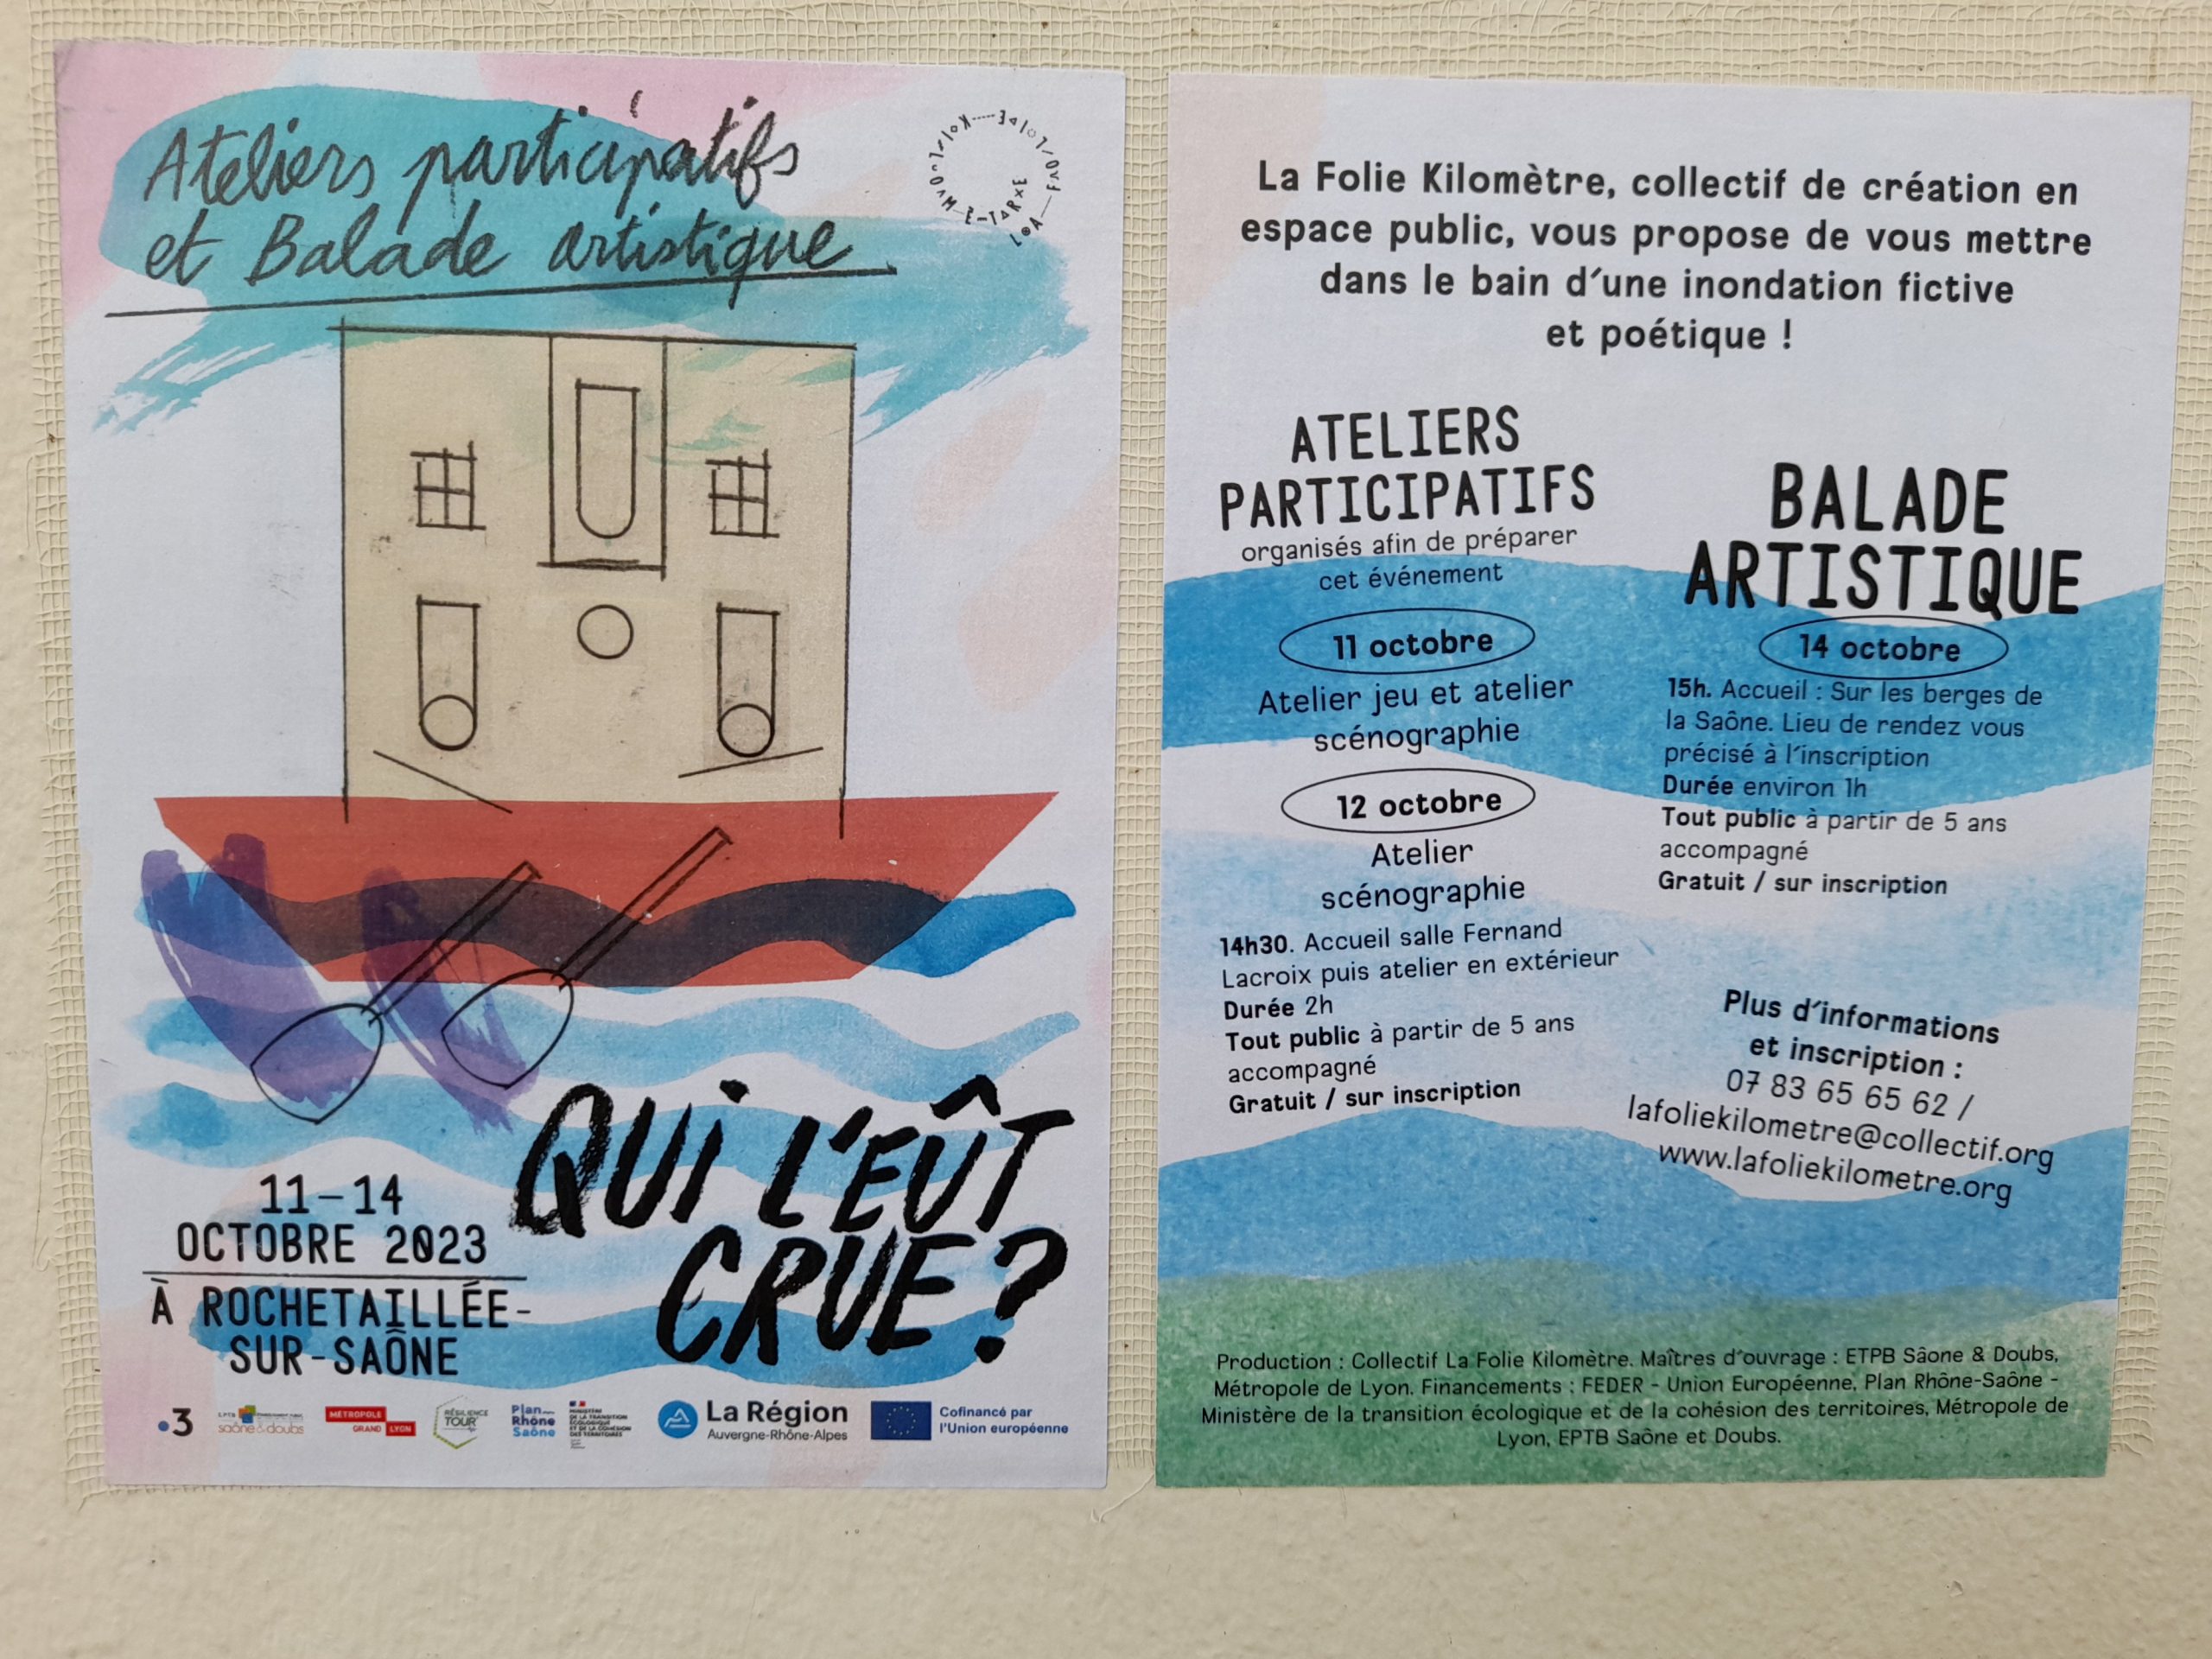 Ateliers participatifs
et Balade artistique
QUI L'EÛT
CRUE?
11-14
OCTOBRE 2023
À ROCHETAILLÉE-
SUR-SAÔNE
3
saône & doubs
MÉTROPOLE
GRAND LYON
RÉSILIENCE
TOUR
Plan
Rhône
Saône
MINISTÈRE
DE LA TRANSITION
ÉCOLOGIQUE
ET DE LA COHÉSION
DES TERRITOIRES
La Région
Auvergne-Rhône-Alpes
Cofinancé par
l'Union européenne
La Folie Kilomètre, collectif de création en
espace public, vous propose de vous mettre
dans le bain d'une inondation fictive
et poétique !
ATELIERS
PARTICIPATIFS
organisés afin de préparer
cet événement
11 octobre
Atelier jeu et atelier
scénographie
12 octobre
Atelier
scénographie
14h30. Accueil salle Fernand
Lacroix puis atelier en extérieur
Durée 2h
Tout public à partir de 5 ans
accompagné
Gratuit / sur inscription
BALADE
ARTISTIQUE
14 octobre
15h. Accueil : Sur les berges de
la Saône. Lieu de rendez vous
précisé à l'inscription
Durée environ 1h
Tout public à partir de 5 ans
accompagné
Gratuit / sur inscription
Plus d'informations
et inscription :
07 83 65 65 62 /
lafoliekilometre@collectif.org
www.lafoliekilometre.org
Production : Collectif La Folie Kilomètre. Maîtres d'ouvrage : ETPB Sâone & Doubs,
Métropole de Lyon. Financements : FEDER - Union Européenne, Plan Rhône-Saône -
Ministère de la transition écologique et de la cohésion des territoires, Métropole de
Lyon, EPTB Saône et Doubs.